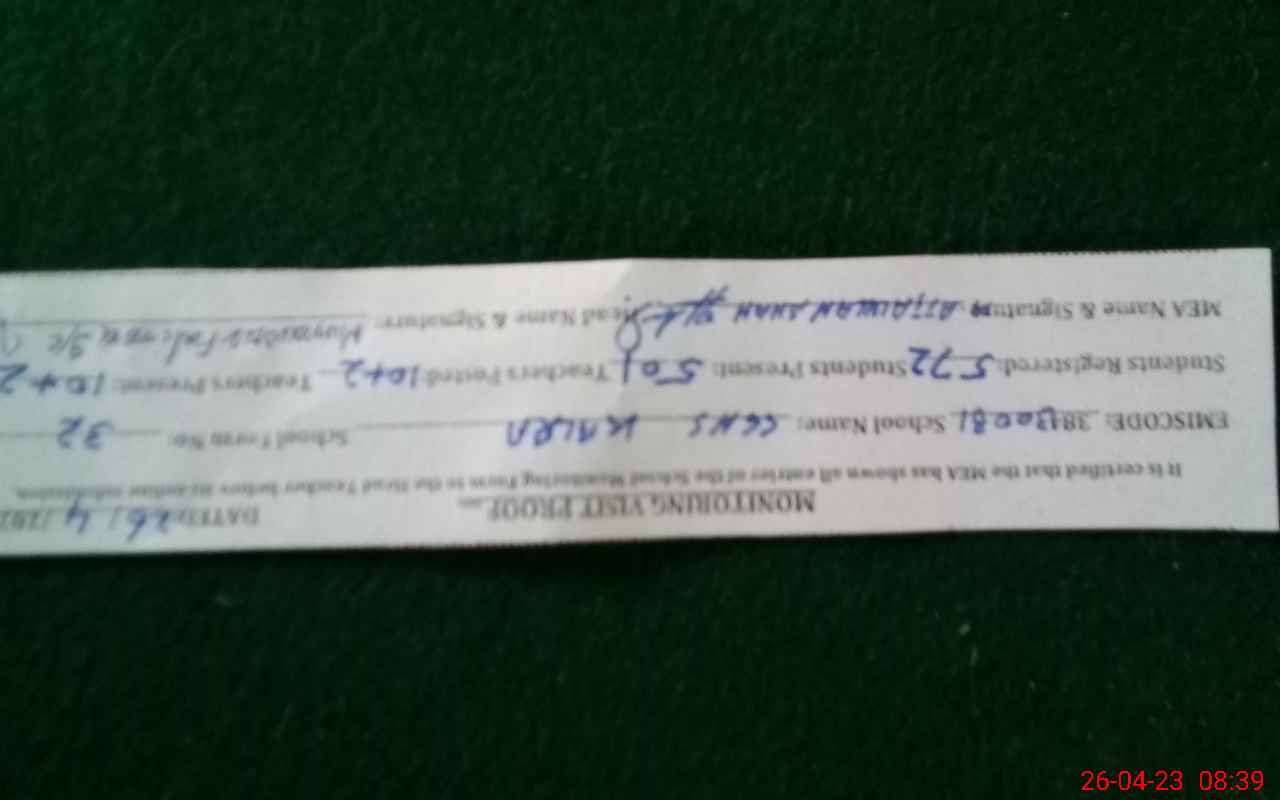 MONITORING VISIT PROOF
DATED: 26/4/202
It is certified that the MEA has shown all entries of the School Monitoring Form to the Head Teacher before
EMISCODE: 38430081 School Name: GGHS KALRA School Form No: 32
Students Registered: 572 Students Present: 501 Teachers Posted: 10+2 Teachers Present: 10+2
MEA Name & Signature: SHAH Head Name & Signature:
26-04-23 08:39